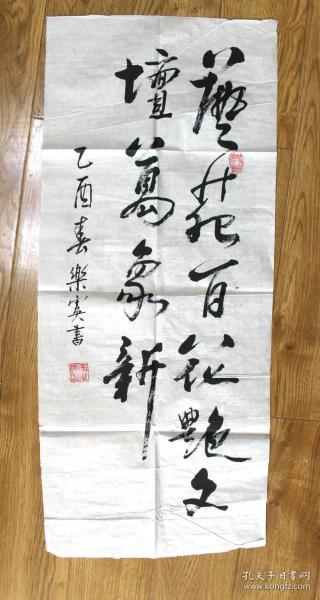 藝苑百花艷文
壇萬象新
乙酉春樂寅書
孔夫子旧书网
www.kongfz.com